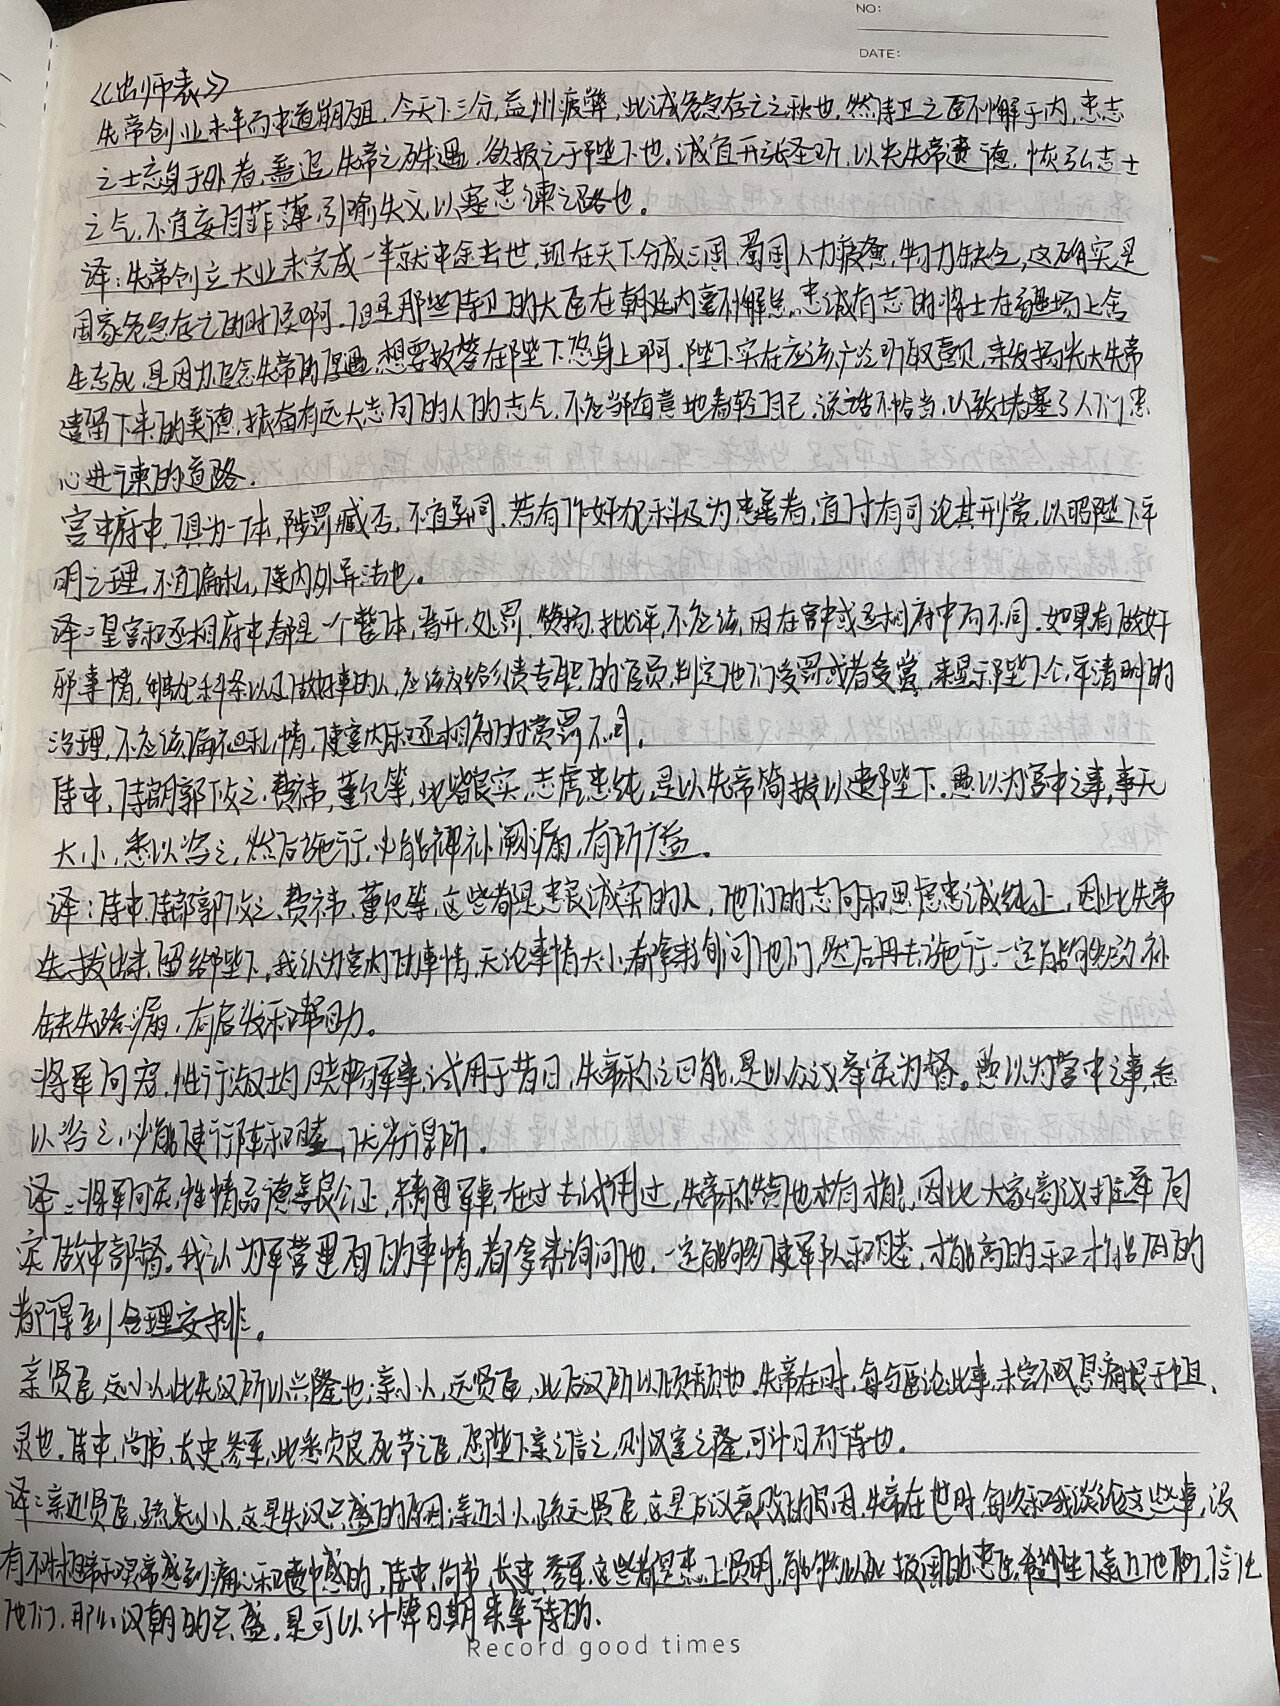 NO:
DATE:
《出师表》
先帝创业未半而中道崩殂,今天下三分,益州疲弊,此诚危急存亡之秋也,然侍卫之臣不懈于内,忠志
之士忘身于外者,盖追先帝之殊遇,欲报之于陛下也,诚宜开张圣听,以光先帝遗德,恢弘志士
之气,不宜妄自菲薄,引喻失义,以塞忠谏之路也。
译:先帝创立大业未完成一半就中途去世,现在天下分成三国,蜀国人力疲惫,物力缺乏,这确实是
国家危急存亡的时候啊。但是那些侍卫的大臣在朝廷内毫不懈怠,忠诚有志的将士在疆场上舍
生忘死,是因为追念先帝的厚遇,想要报答在陛下您身上啊,陛下实在应该广泛听取意见,来发扬光大先帝
遗留下来的美德,振奋有远大志向的人的志气,不应当随意地看轻自己,说话不恰当,以致堵塞了人们忠
心进谏的道路.
宫中府中,俱为一体,陟罚臧否,不宜异同,若有作奸犯科及为忠善者,宜付有司论其刑赏,以昭陛下平
明之理,不宜偏私,使内外异法也。
译:皇宫和丞相府中都是一个整体,晋升,处罚,赞扬,批评,不应该因在宫中或丞相府中而不同.如果有做奸
邪事情,触犯科条以及做好事的人,应该交给负责专职的官员,判定他们受罚或者受赏,来显示陛下公平清明的
治理,不应该偏袒私情,使宫内和丞相府的赏罚不同。
侍中,侍郎郭攸之,费祎,董允等,此皆良实,志虑忠纯,是以先帝简拔以遗陛下.愚以为宫中之事,事无
大小,悉以咨之,然后施行,必能裨补阙漏,有所广益。
译:侍中侍郎郭攸之,费祎,董允等,这些都是忠良诚实的人,他们的志向和思虑忠诚纯正,因此先帝
选拔出来留给陛下.我认为宫内的事情,无论事情大小,都拿来询问他们,然后再去施行,一定能够弥补
缺失疏漏,有启发和帮助。
将军向宠,性行淑均,晓畅军事,试用于昔日,先帝称之曰能,是以众议举宠为督。愚以为营中之事,悉
以咨之,必能使行阵和睦,优劣得所.
译:将军向宠,性情品德善良公正,精通军事,在过去试用过,先帝称赞他有才能,因此大家商议推举向
宠做中部督。我认为军营里有的事情,都拿来询问他,一定能够使军队和睦,才能高的和才能低的
都得到合理安排。
亲贤臣,远小人,此先汉所以兴隆也;亲小人,远贤臣,此后汉所以倾颓也.先帝在时,每与臣论此事,未尝不叹息痛恨于桓、
灵也.侍中,尚书,长史,参军,此悉贞良死节之臣,愿陛下亲之信之,则汉室之隆,可计日而待也.
译:亲近贤臣,疏远小人,这是先汉兴盛的原因;亲近小人,疏远贤臣,这是后汉衰败的原因.先帝在世时,每次和我谈论这些事,没
有不对桓帝和灵帝感到痛心和遗憾的,侍中,尚书,长史,参军,这些都是忠正贤明,能够以死报国的忠臣,希望陛下亲近他们,信任
他们,那么汉朝的兴盛,是可以计算日期来等待的.
Record good times